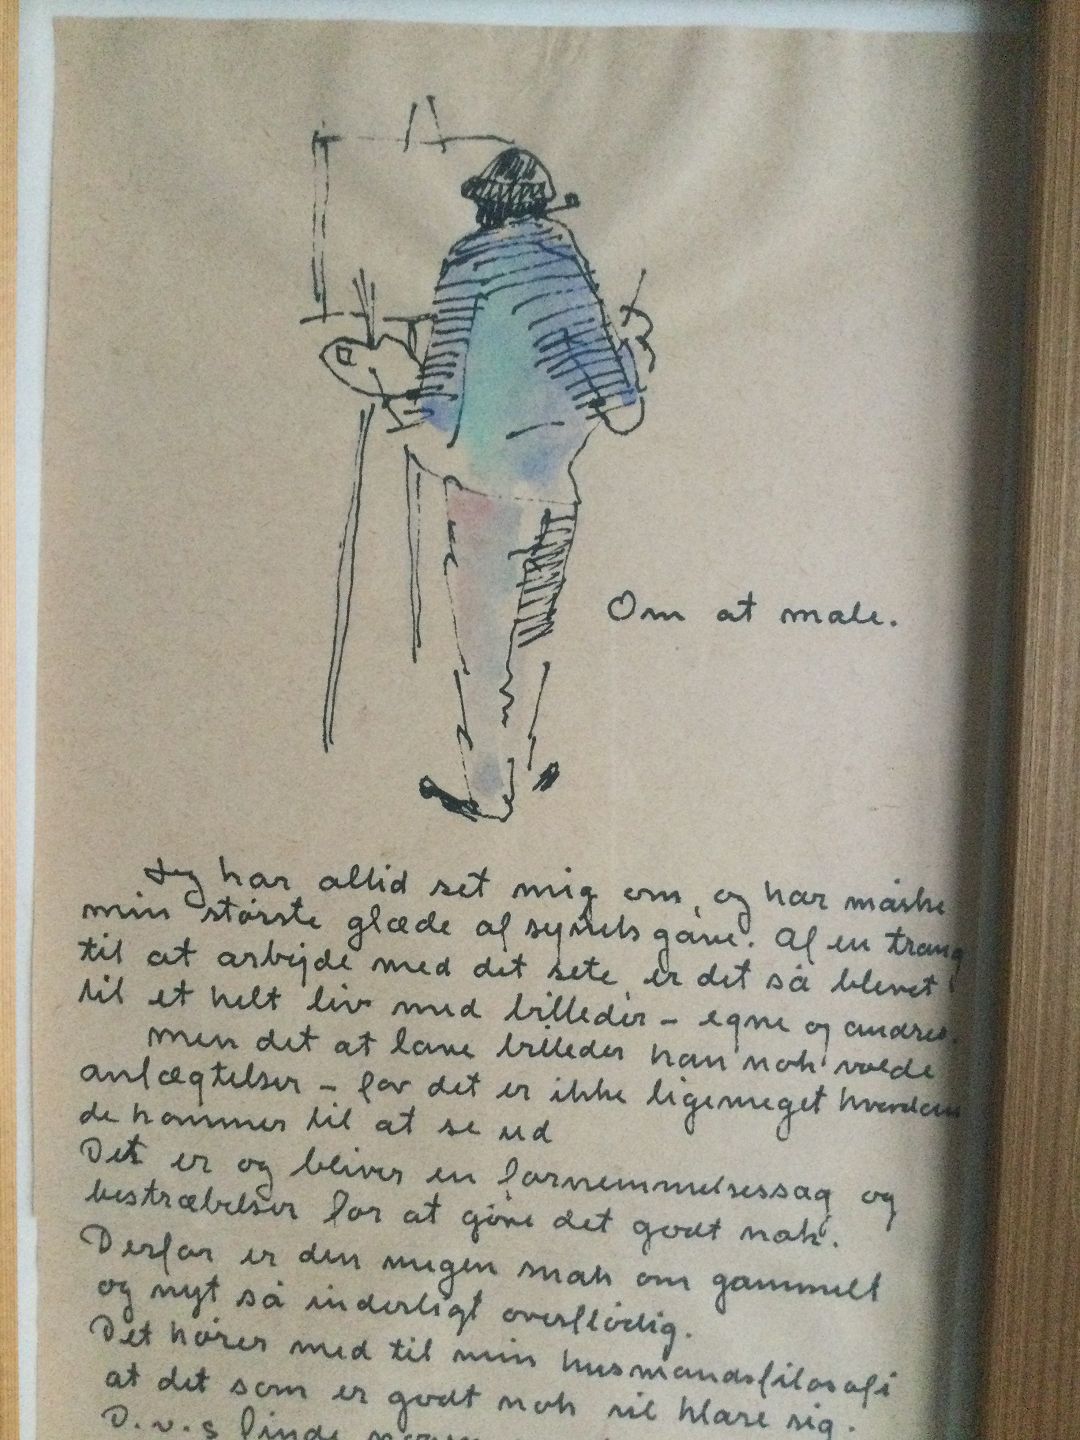 Om at male.
Jeg har altid set mig om, og har måske
min største glæde af synets gave. Af en trang
til at arbejde med det sete, er det så blevet
til et helt liv med billeder – egne og andres.
Men det at lave billeder kan nok volde
anfægtelser – for det er ikke ligemeget hvordan
de kommer til at se ud
Det er og bliver en fornemmelsessag og
bestræbelser for at gøre det godt nok.
Derfor er den megen snak om gammelt
og nyt så inderligt overflødig.
Det hører med til min husmandsfilosofi
at det som er godt nok vil klare sig.
D.v.s finde